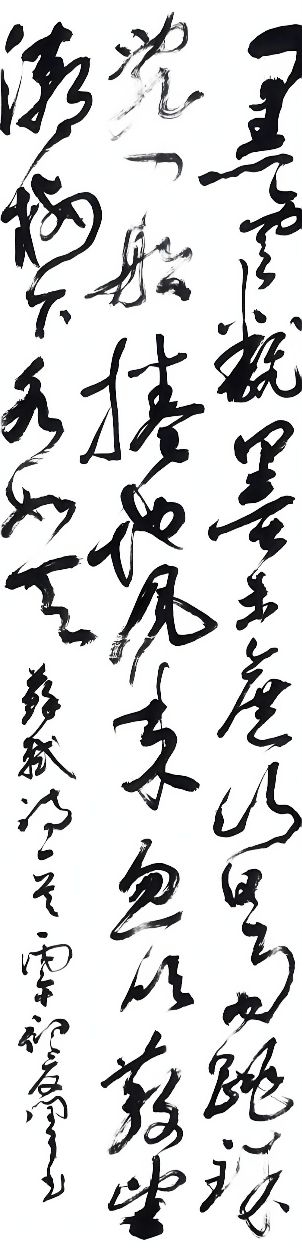 黑雲翻墨未遮山白雨跳珠
亂入船捲地風來忽吹散望
湖樓下水如天
蘇軾詩一首 丙午初夏 書